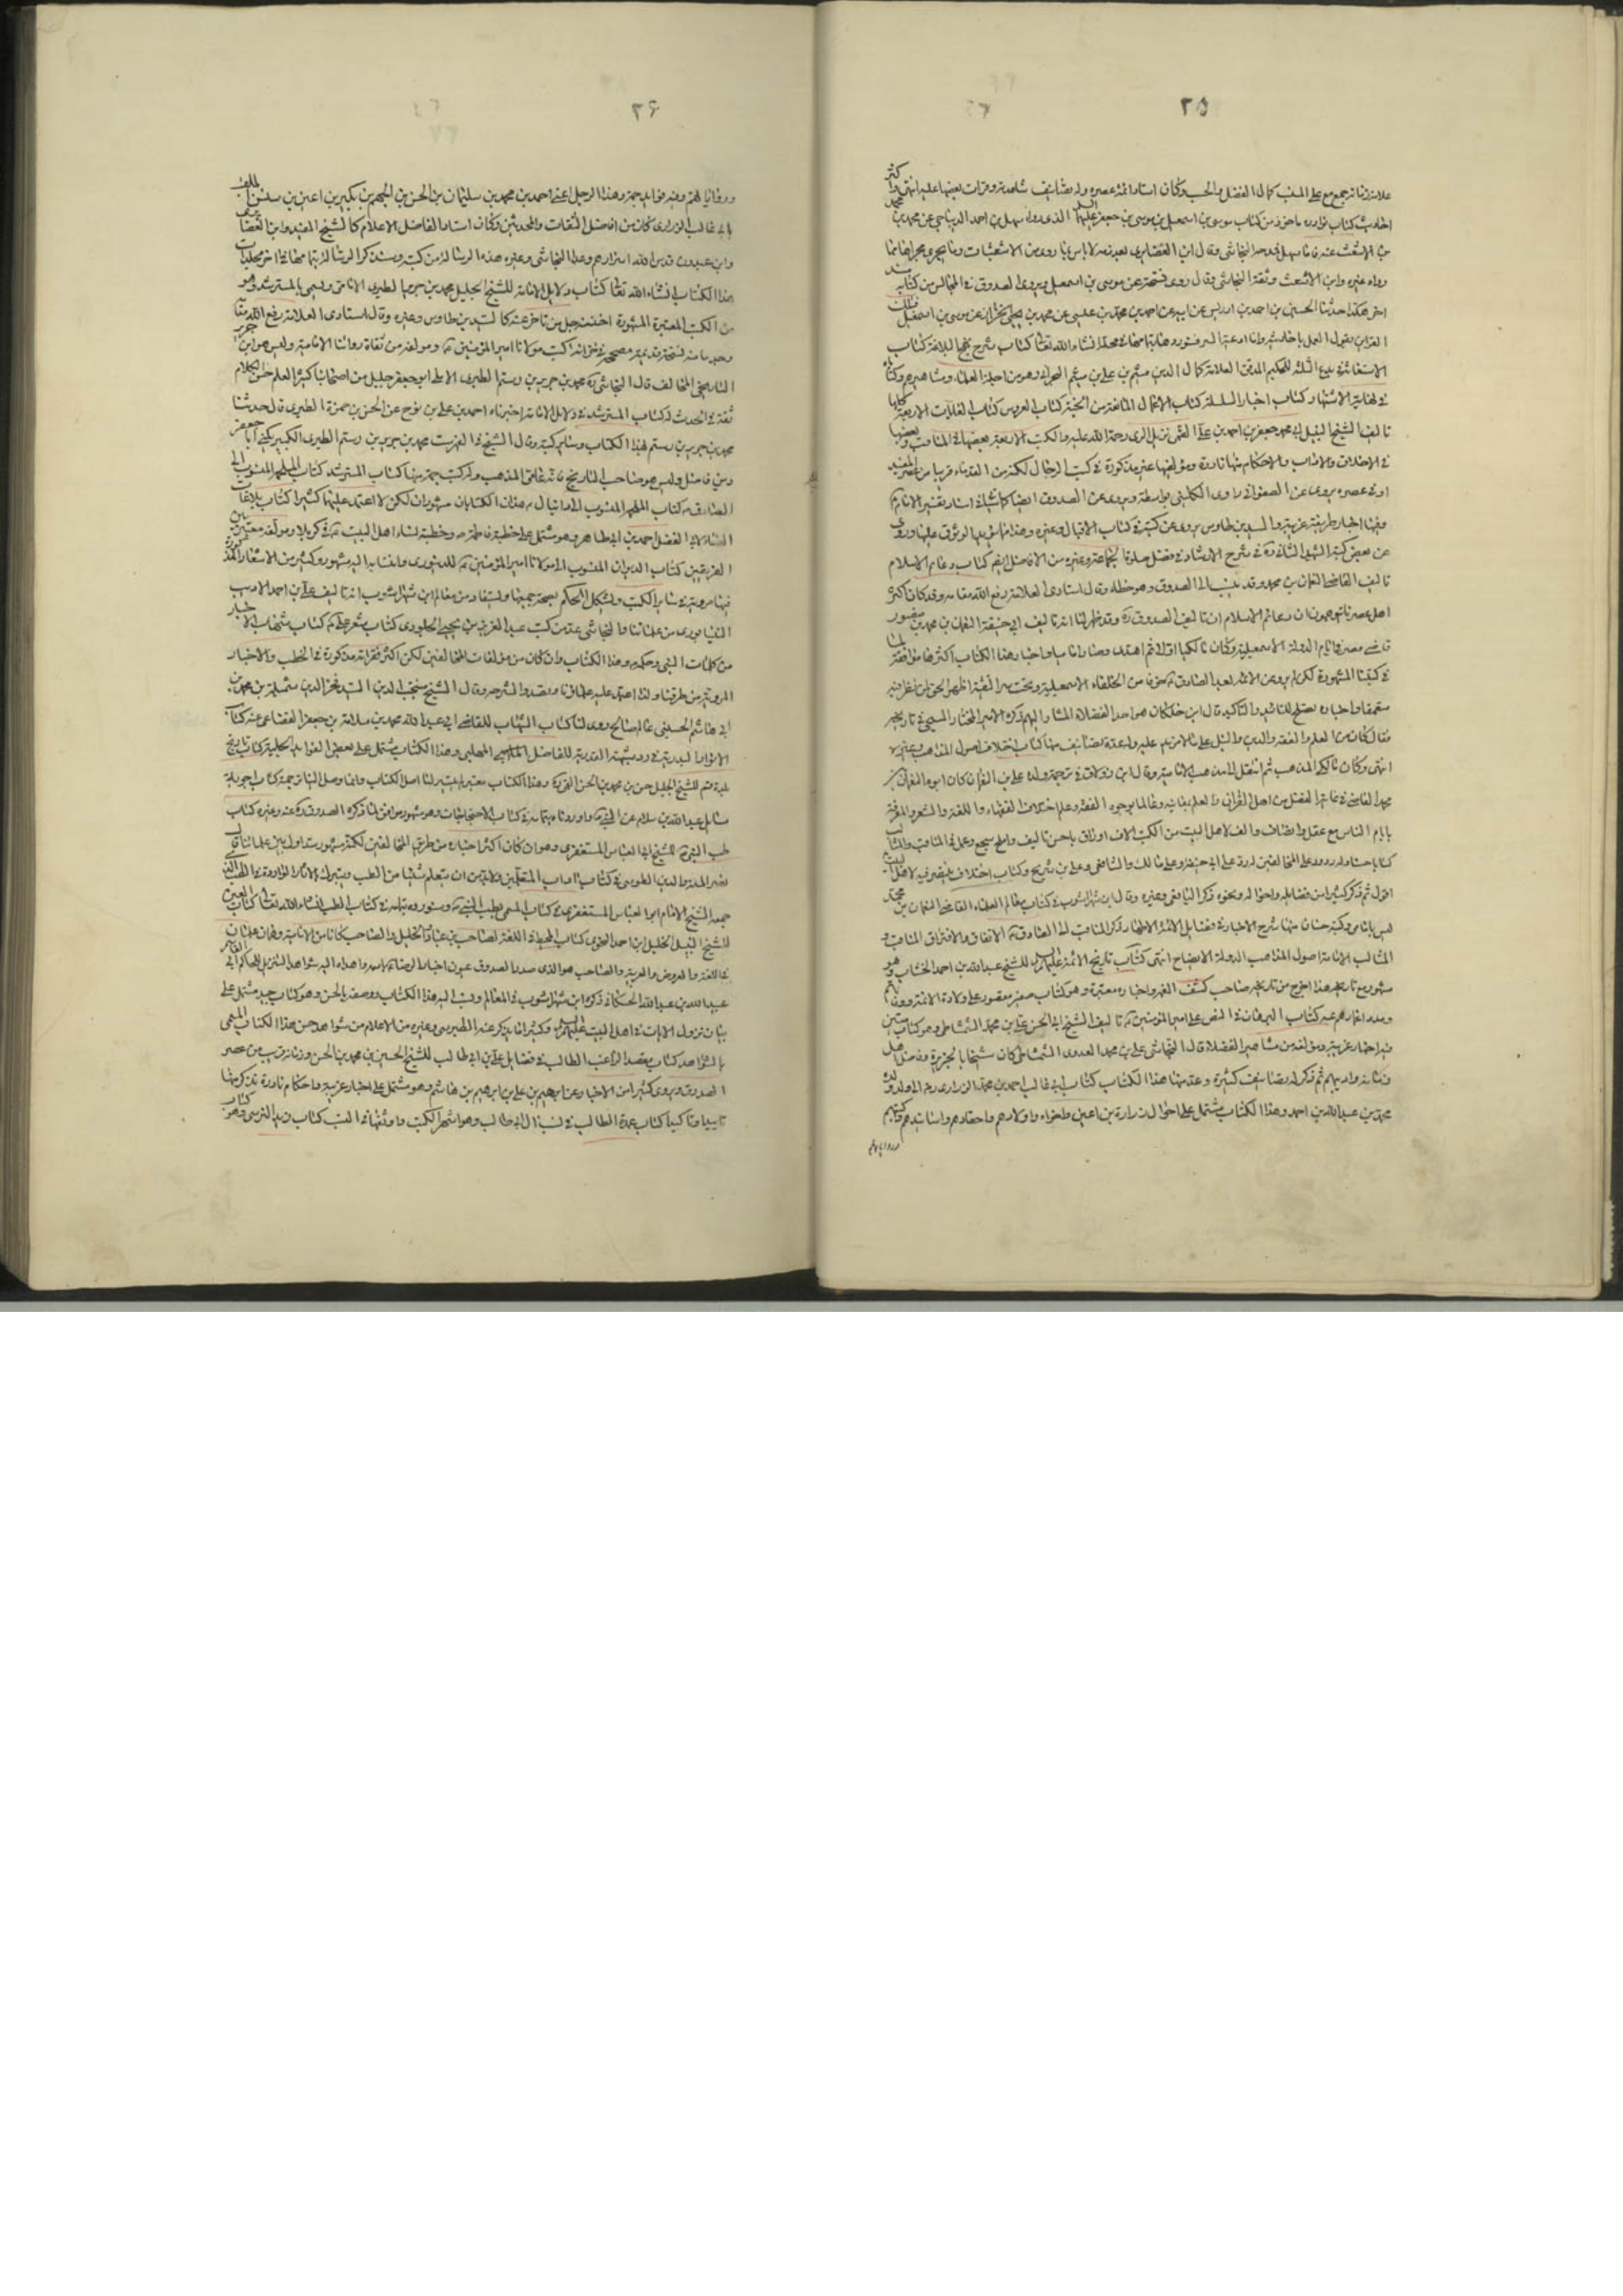 ٢٥
علامة زمانه جمع مع على النسب كمال الفضل والحسب وكان استاد ائمة عصره وله تصانيف شاهدته وقرأت بعضها عليه انتهى واكثر
احاديث كتاب نوادره ماخوذ من كتاب موسى بن اسمعيل بن موسى بن جعفر عليهما السلم الذى رواه سهل بن احمد الديباجي عن محمد بن محمد
رواه غيره وابن الاشعث وثقه النجاشى وقال روى نسخة عن موسى بن اسمعيل ويروى الصدوق في المجالس من كتابه بسند
اخر هكذا حدثنا الحسين بن احمد بن ادريس عن ابيه عن احمد بن محمد بن عيسى عن محمد بن يحيى الخزاز عن موسى بن اسمعيل
انشاء الله تعالى كتاب شرح نهج البلاغة كتاب
الاستغاثة في بدع الثلثة للحكيم المدقق العلامة كمال الدين ميثم بن علي بن ميثم البحراني وهو من اجلة العلماء ومشاهيرهم وكتاباه
في نهاية الاشتهار كتاب اخبار السلسلة كتاب الاعمال المانعة من الجنة كتاب العروس كتاب الغايات الاربعة كلها
تاليف الشيخ النبيل ابي محمد جعفر بن احمد بن علي القمي نزيل الرى رحمة الله عليه والكتب الاربعة بعضها في المناقب وبعضها
في الاخلاق والاداب والاحكام فيها نادرة ومؤلفها غير مذكورة في كتب الرجال لكنه من القدماء قريبا من عصر المفيد
او في عصره يروى عن الصفوانى راوى الكلينى بواسطة ويروى عن الصدوق ايضا كما سياتى في اسناد تفسير الامام
وفيها اخبار طريفة غريبة والسيد بن طاوس يروى عن كتبه في كتاب الاقبال وغيره وهذا مما يؤيد الوثوق عليها وروى
عن بعض كتبه الشهيد الثاني ره في شرح الارشاد في فضل صلوة الجماعة وغيره من الافاضل ايضا كتاب دعائم الاسلام
تاليف القاضي النعمان بن محمد وقد ينسب الى الصدوق وهو خطاء وقال استادى العلامة رفع الله مقامه وقد كان اكثر
اهل عصرنا يتوهمون ان دعائم الاسلام انه تاليف الصدوق ره وقد ظهر لنا انه تاليف ابي حنيفة النعمان بن محمد بن منصور
قاضي مصر في ايام الدولة الاسمعيلية وكان مالكيا اولا ثم اهتدى وصار اماميا واخبار هذا الكتاب اكثرها موافقة لما
في كتبنا المشهورة لكن لم يرو عن الائمة بعد الصادق خوفا من الخلفاء الاسمعيلية وتحت ستر التقية اظهر الحق لمن نظر فيه
متعمقا واخباره تصلح للتاييد والتاكيد قال ابن خلكان هو احد الفضلاء المشار اليهم ذكره الامير المختار المسبحي في تاريخه
فقال كان من العلم والفقه والدين والنبل على ما لا مزيد عليه وله عدة تصانيف منها كتاب اختلاف اصول المذاهب وغيره
انتهى وكان مالكي المذهب ثم انتقل الى مذهب الامامية وقال ابن زولاق في ترجمة ولده علي بن النعمان كان ابوه النعمان بن
محمد القاضي في غاية الفضل من اهل القرآن والعلم بمعانيه وعالما بوجوه الفقه وعلم اختلاف الفقهاء واللغة والشعر والمعرفة
بايام الناس مع عقل وانصاف والف لاهل البيت من الكتب الاف اوراق باحسن تاليف واملح سجع وعمل في المناقب والمثالب
كتابا حسنا وله ردود على المخالفين له رد على ابي حنيفة وعلى مالك والشافعي وعلى بن شريح وكتاب اختلاف
اقول ثم ذكر كثيرا من فضايله واحواله ونحوه ذكر اليافعى وغيره وقال ابن شهراشوب في كتاب معالم العلماء القاضي النعمان بن محمد
ليس بامامى وكتبه حسان منها شرح الاخبار في فضايل الائمة الاطهار ذكر المناقب الى الصادق الاتفاق والافتراق المناقب و
المثالب الامامة اصول المذاهب الدولة الايضاح انتهى كتاب تاريخ الائمة عليهم السلم للشيخ عبد الله بن احمد الخشاب وهو
مشهور اخرج من تاريخه صاحب كشف الغمه واخباره معتبرة وهو كتاب صغير مقصور على ولادة الائمة ووفاتهم
ومدد اعمارهم كتاب البرهان في النص على امير المؤمنين تاليف الشيخ ابى الحسن علي بن محمد الشمشاطى وهو كتاب متين
فيه اخبار غريبة ومؤلفه من مشاهير الفضلاء قال النجاشى علي بن محمد العدوى الشمشاطى كان شيخا بالجزيرة وفاضل اهل
زمانه واديبهم ثم ذكر له تصانيف كثيرة وعد منها هذا الكتاب كتاب ابى غالب احمد بن محمد الزرارى ره الى ولد ولده
محمد بن عبد الله بن احمد وهذا الكتاب مشتمل على احوال زرارة بن اعين واخوانه واولادهم واحفادهم واسانيدهم وكتبهم
ورواياتهم
٢۶
ورواياتهم وفيه فوايد جمة وهذا الرجل اعنى احمد بن محمد بن سليمان بن الحسن بن الجهم بن بكير بن اعين بن سنسن الملقب
بابى غالب الزرارى كان من افاضل الثقات والمحدثين وكان استاد الفاضل الاعلام كالشيخ المفيد وابن الغضايرى
وابن عبدون قدس الله اسرارهم وعد النجاشى وغيره هذه الرسالة من كتبه وسنذكر الرسالة بتمامها في اخر مجلدات
هذا الكتاب انشاء الله تعالى كتاب دلايل الامامة للشيخ الجليل محمد بن جرير الطبرى الامامى ويسمى بالمسترشد وهو
من الكتب المعتبرة المشهورة اخذ منه جل من تاخر عنه كالسيد بن طاوس وغيره وقال استادى العلامة رفع الله مقامه
وجدنا منه نسخة قديمة مصححة في خزانة كتب مولانا امير المؤمنين ومؤلفه من ثقاة رواتنا الامامية وليس هو ابن جرير
التاريخي المخالف قال النجاشى ره محمد بن جرير بن رستم الطبرى الاملى ابو جعفر جليل من اصحابنا كثير العلم حسن الكلام
ثقة في الحديث له كتاب المسترشد في دلايل الامامة اخبرناه احمد بن علي بن نوح عن الحسن بن حمزة الطبرى قال حدثنا
محمد بن جرير بن رستم بهذا الكتاب وسائر كتبه وقال الشيخ في الفهرست محمد بن جرير بن رستم الطبرى الكبير يكنى ابا جعفر
دين فاضل وليس هو صاحب التاريخ فانه عامى المذهب وله كتب جمة منها كتاب المسترشد كتاب المنسوب الى
الصادق كتاب الملهم المنسوب الى دانيال هذان الكتابان مشهوران لكن لا اعتمد عليهما كثيرا كتاب بلاغات
النساء لابى الفضل احمد بن ابى طاهر وهو مشتمل على خطبة فاطمة وخطبة نساء اهل البيت في كربلا ومؤلفه معتبر بين
الفريقين كتاب الديوان المنسوب الى مولانا امير المؤمنين وانتسابه اليه مشهور وكثير من الاشعار المذكورة
فيها مروية في سائر الكتب ويشكل الحكم بصحة جميعها ويستفاد من معالم ابن شهراشوب انه تاليف علي بن احمد الاديب
النيسابورى من علمائنا والنجاشى عد من كتب عبد العزيز بن يحيى الجلودى كتاب شعر علي كتاب شهاب الاخبار
من كلمات النبي وحكمه وهذا الكتاب وان كان من مؤلفات المخالفين لكن اكثر فقراته مذكورة في الخطب والاخبار
المروية من طرقنا ولذا اعتمد عليه علماؤنا وتصدوا لشرحه وقال الشيخ منتجب الدين السيد فخر الدين شميلة بن محمد بن
ابي هاشم الحسينى عالم صالح روى لنا كتاب الشهاب للقاضي ابي عبد الله محمد بن سلامة بن جعفر القضاعى عنه كتاب
الانوار البدرية في رد شبهة القدرية للفاضل المهلبى وهذا الكتاب يشتمل على بعض الفوايد الجليلة كتاب تاريخ
بلدة قم للشيخ الجليل حسن بن محمد بن الحسن القمى وهذا الكتاب معتبر لم يتيسر لنا اصل الكتاب وانما وصل الينا ترجمته كتاب اجوبة
مسائل عبد الله بن سلام عن النبي كتاب الاحتجاجات وهو مشهور ذكره الصدوق ره كتاب
طب النبي للشيخ ابى العباس المستغفرى وهو ان كان اكثر اخباره من طرق المخالفين لكنه مشهور متداول بين علمائنا قال
نصير الملة والدين الطوسى في كتاب اداب المتعلمين ولابد من ان يتعلم شيئا من الطب ويتبرك بالاثار الواردة في الطب الذى
جمعه الشيخ الامام ابو العباس المستغفرى في كتاب المسمى بطب النبي وسنورده بتمامه في كتاب الطب انشاء الله تعالى كتاب العين
للشيخ النبيل الخليل بن احمد النحوى كتاب المحيط في اللغة لصاحب بن عباد الخليل والصاحب كانا من الامامية وهما علمان
في اللغة والعروض والعربية والصاحب هو الذى صدر الصدوق عيون اخبار الرضا باسمه واهداه اليه شواهد التنزيل للحاكم ابى القاسم
عبيد الله بن عبد الله الحسكانى ذكره ابن شهراشوب في المعالم ونسب اليه هذا الكتاب ووصفه بالحسن وهو كتاب جيد مشتمل على
بيان نزول الايات في اهل البيت عليهم السلم وكثيرا ما يذكر عنه الطبرسى وغيره من الاعلام
كتاب مقصد الراغب الطالب في فضايل علي بن ابى طالب للشيخ الحسين بن محمد بن الحسن وزمانه قريب من عصر
الصدوق ويروى كثيرا من الاخبار عن ابراهيم بن علي بن ابراهيم بن هاشم وهو مشتمل على اخبار غريبة واحكام نادرة نذكر منها
تاييدا وتاكيدا كتاب عمدة الطالب في نسب ال ابى طالب وهو اشهر الكتب واوثقها في النسب كتاب زيد النرسى وهو كتاب